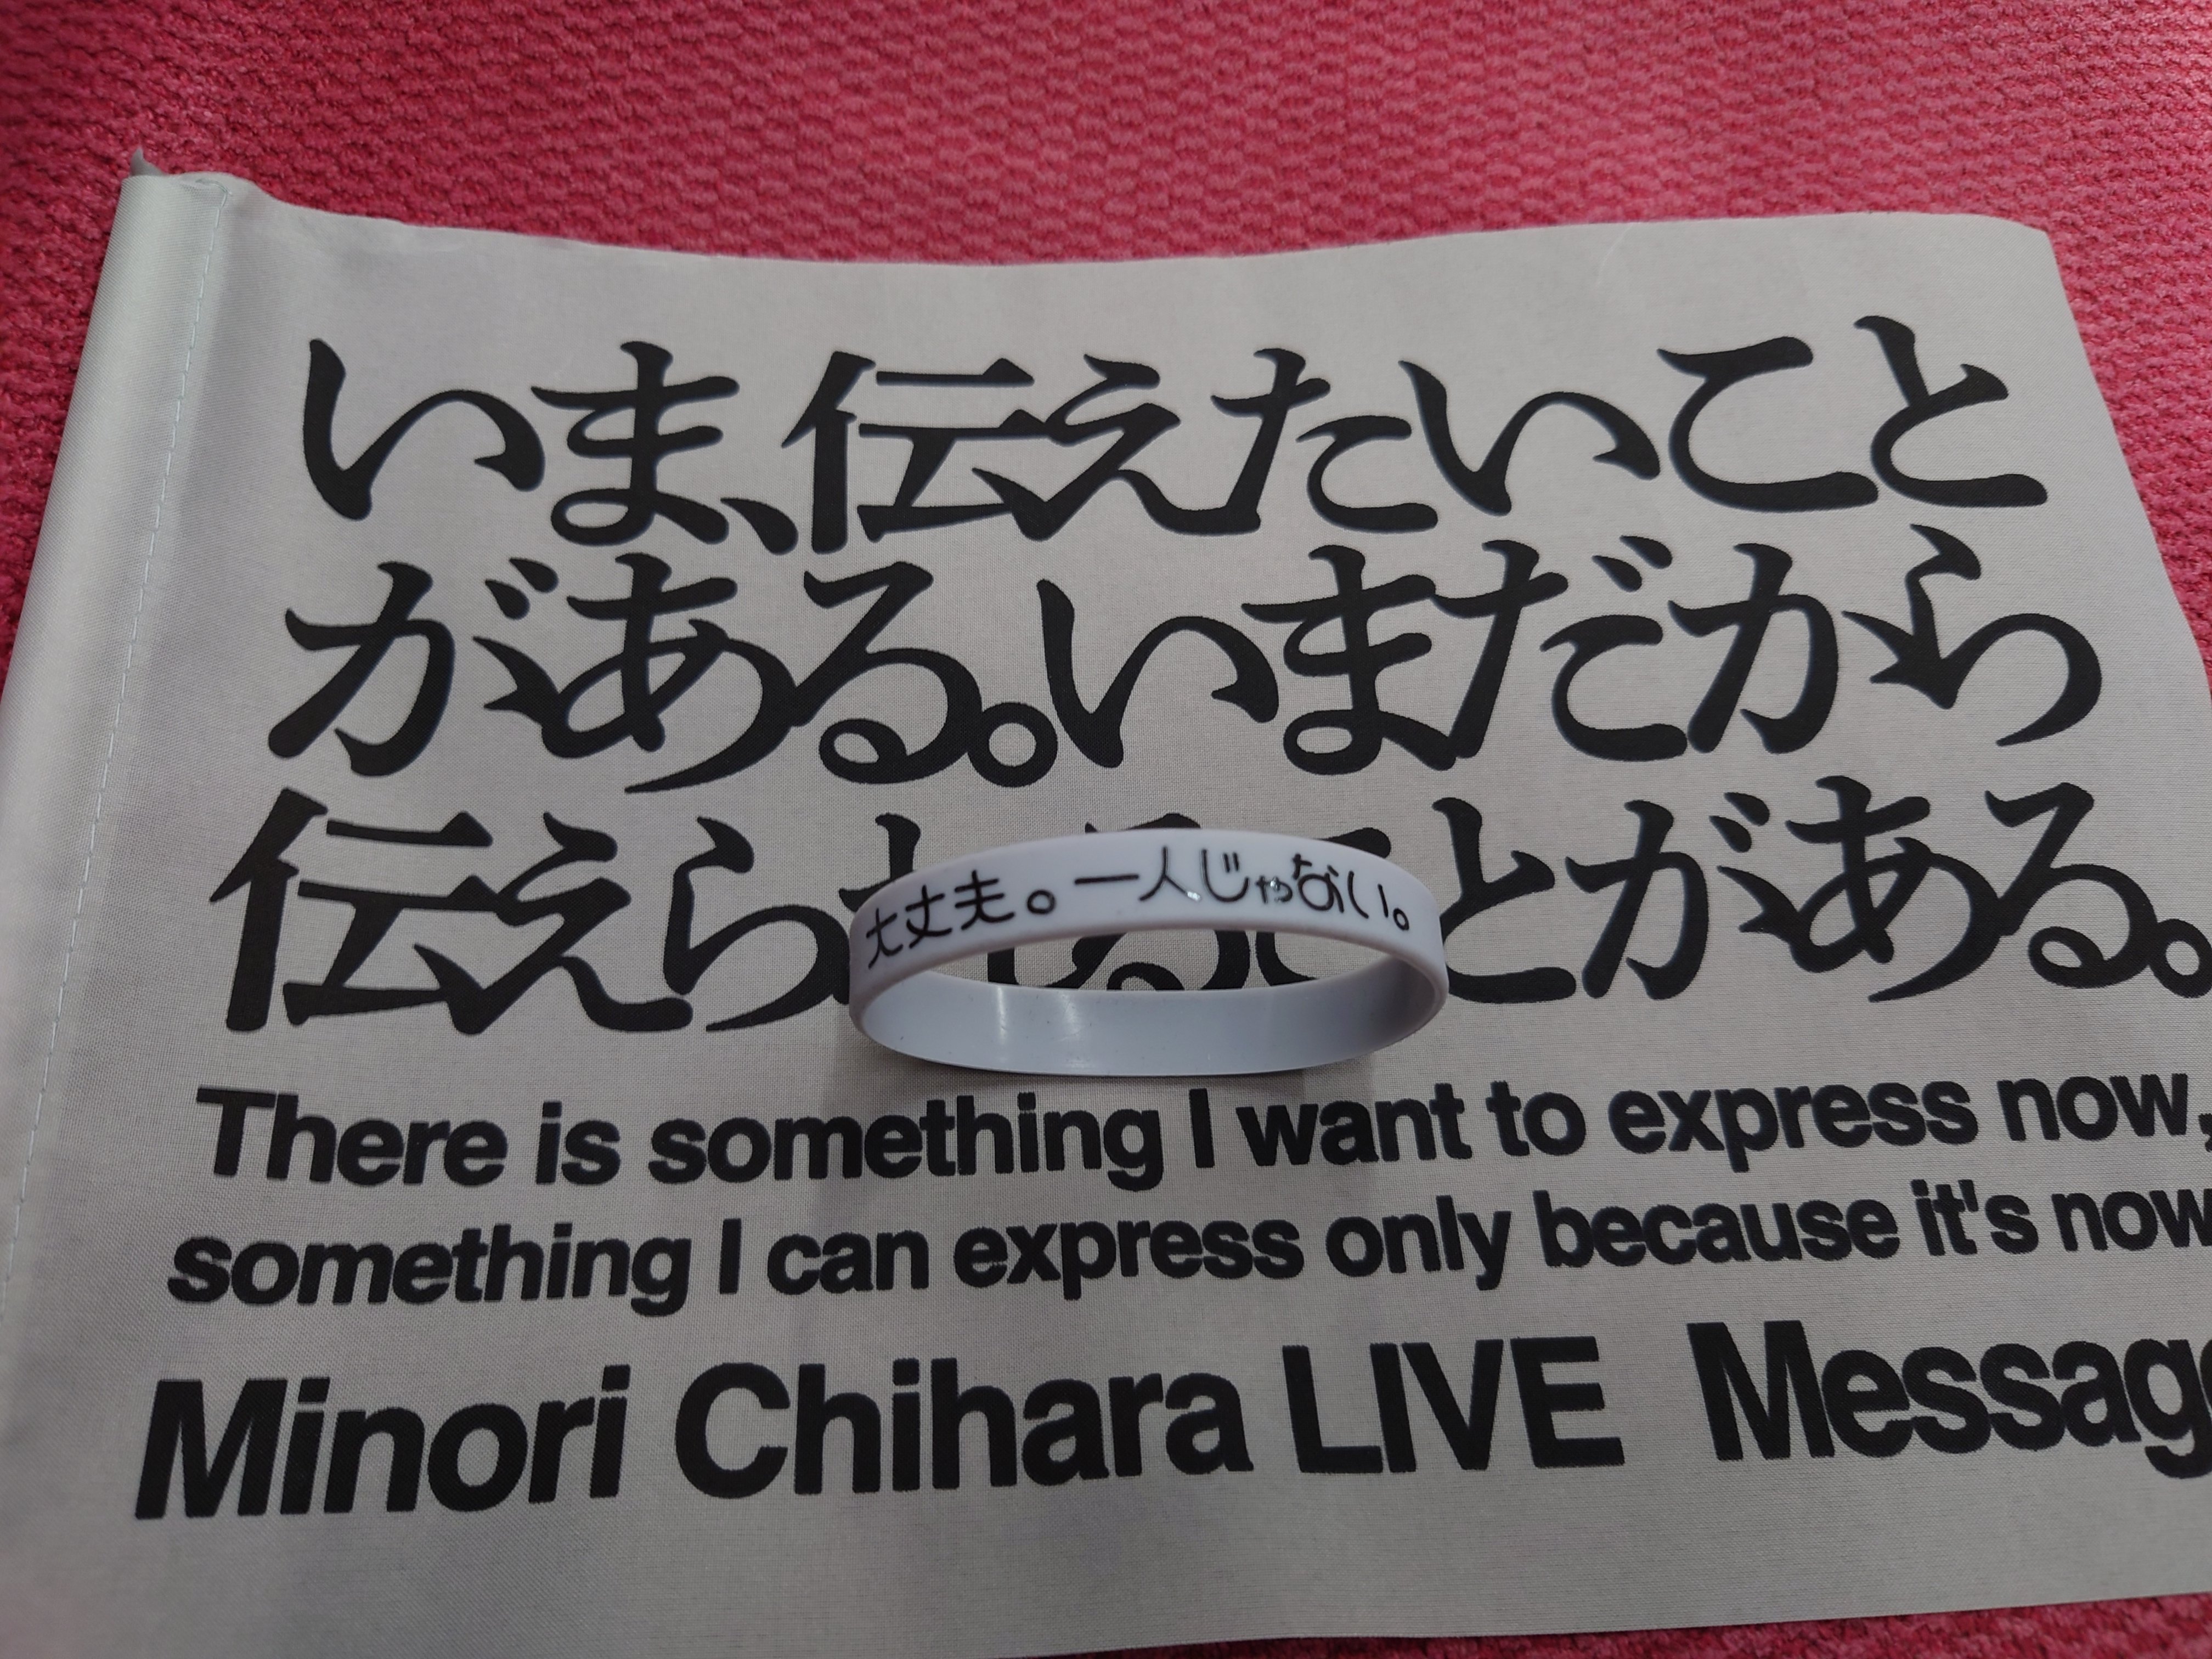 いま、伝えたいこと
がある。いまだから
伝えら ることがある。
大丈夫。一人じゃない。
There is something I want to express now,
something I can express only because it's now
Minori Chihara LIVE Messag